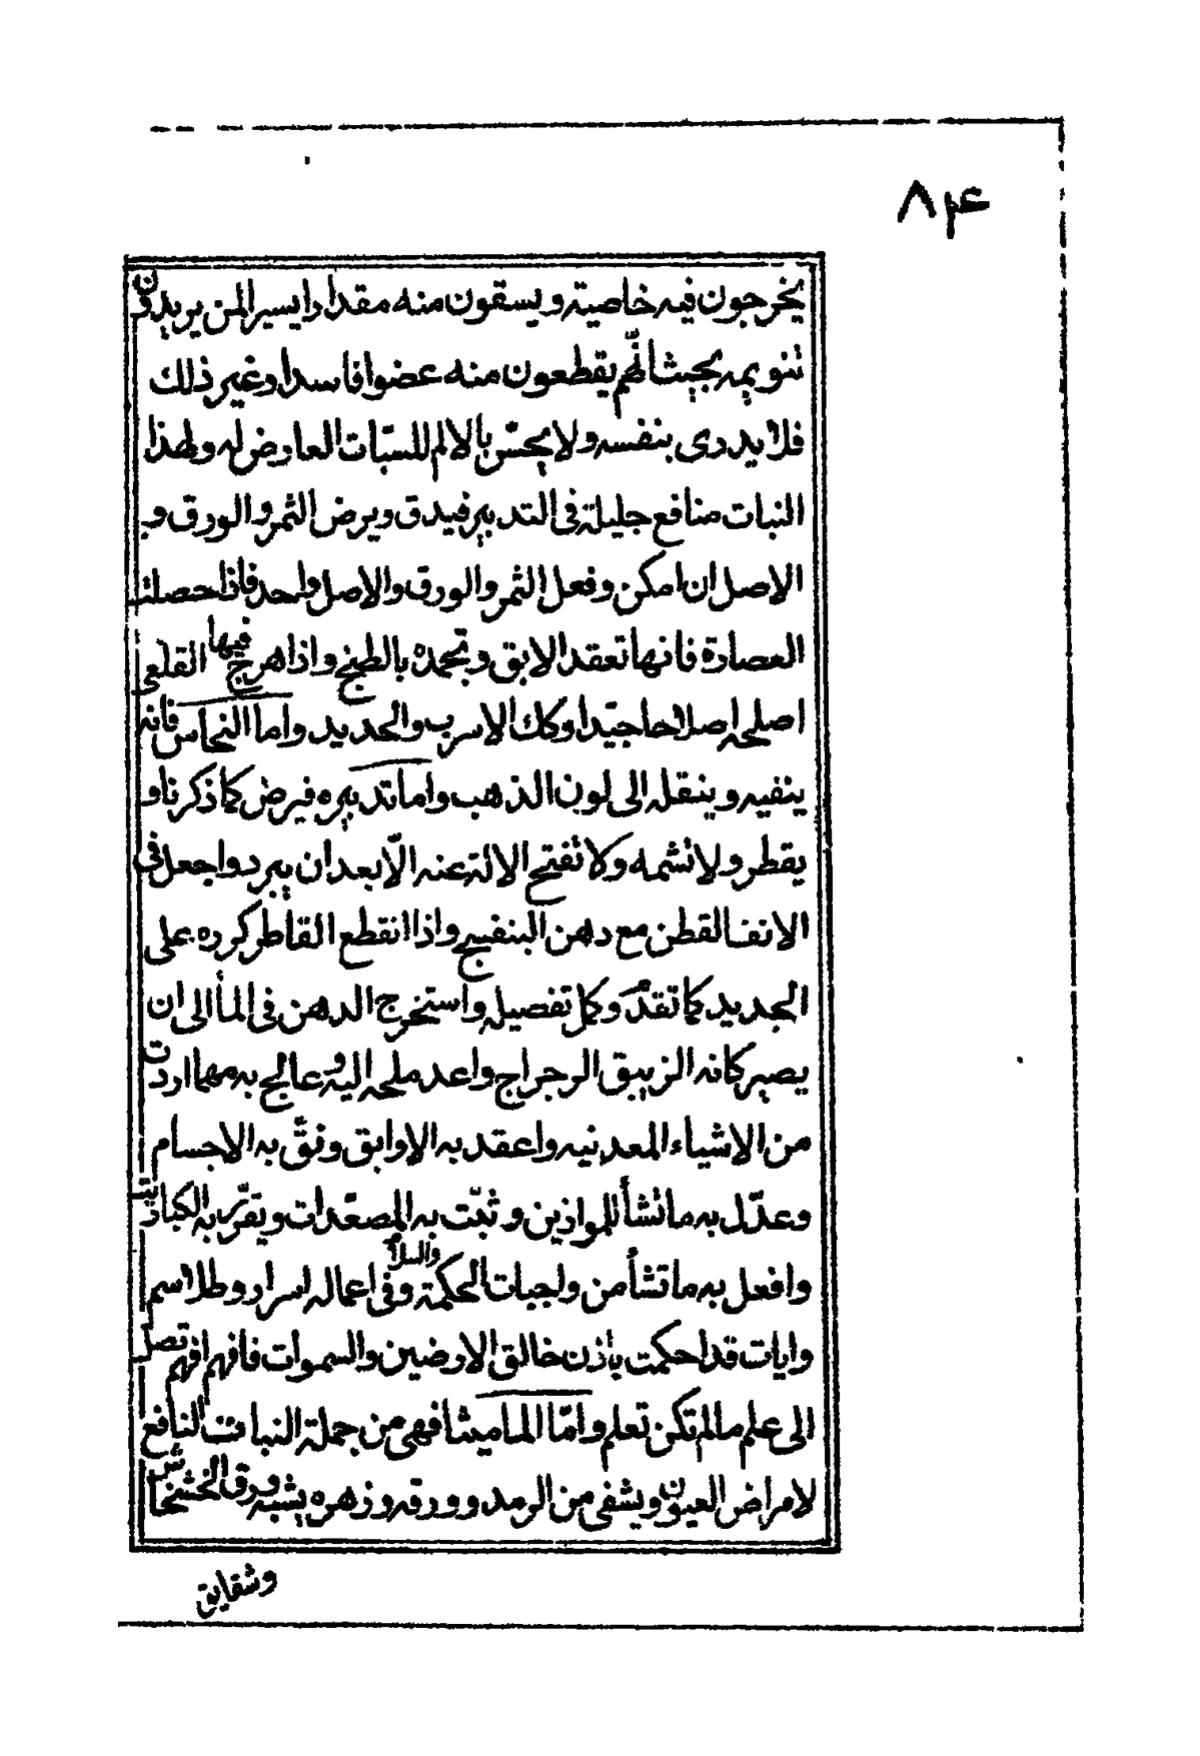 ٨٤
يخرجون فيه خاصيته ويسقون منه مقدارا يسيرا لمن يريدون
تنويمه بحيث انهّم يقطعون منه عضوا فاسدا وغير ذلك
فلا يدرى بنفسه ولا يحسّ بالالم للسبّات العارض له ولهذا
النبات منافع جليلة فى التدبير فيدق ويرض الثمر والورق و
الاصل ان امكن وفعل الثمر والورق والاصل واحد فاذا حصلت
العصارة فانها تعقد الابق وتجمده بالطبخ واذا هرج فيها القلعى
اصلحه اصلاحا جيّدا وكك الاسرب والحديد واما النحاس فانه
ينفيه وينقله الى لون الذهب واما تدبيره فيرض كما ذكرنا و
يقطر ولا تشمه ولا تفتح الالة عنه الّا بعد ان يبرد واجعل فى
الانف القطن مع دهن البنفسج واذا انقطع القاطر كرره على
الجديد كما تقدّم وكمل تفصيله واستخرج الدهن فى الماء الى ان
يصير كانه الزيبق الرجراج واعد ملحه اليه وعالج به مهما اردت
من الاشياء المعدنيه واعقد به الاوابق ونقّ به الاجسام
وعدّل به ما تشأ للموازين وثبّت به المصعّدات ويقرّب به الكباريت
وافعل به ما تشأ من واجبات الحكمة والسلم وفى اعماله اسرار وطلاسم
وايات قد احكمت باذن خالق الارضين والسموات فافهم افهم تصل
الى علم ما لم تكن تعلم وامّا الماميثا فهى من جملة النبات النافع
لامراض العيون ويشفى من الرمد وورقه وزهره يشبه ورق الخشخاش
وشقايق